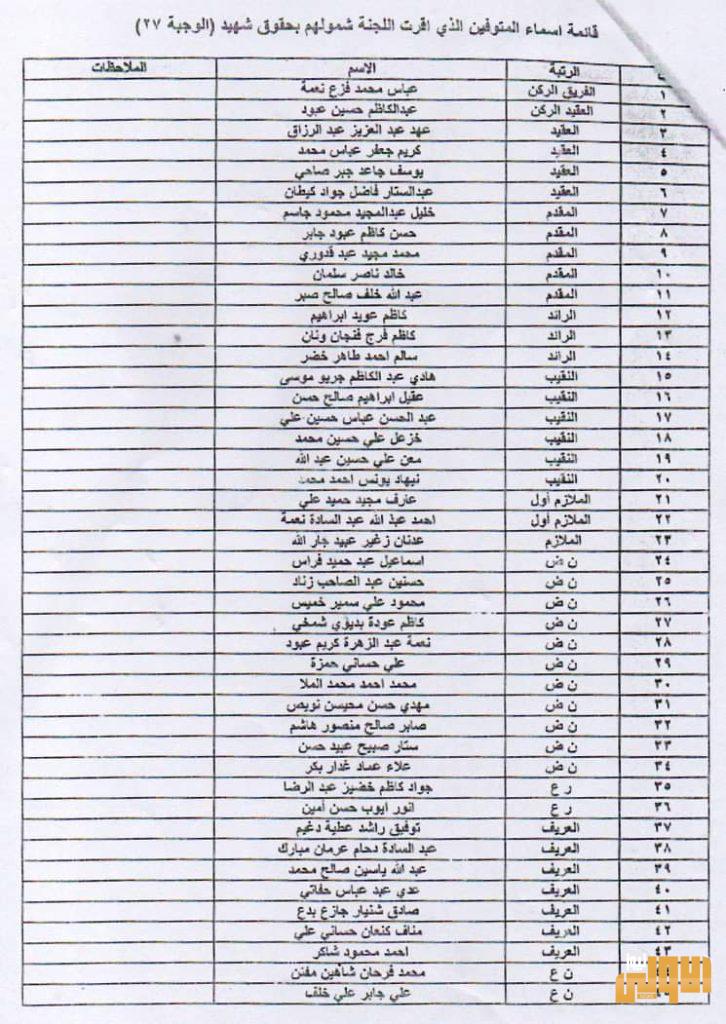 قائمة اسماء المتوفين الذي اقرت اللجنة شمولهم بحقوق شهيد (الوجبة ٢٧)
ت الرتبة الاسم الملاحظات
١ الفريق الركن عباس محمد فزع نعمة
٢ العقيد الركن عبدالكاظم حسين عبود
٣ العقيد عهد عبد العزيز عبد الرزاق
٤ العقيد كريم جعفر عباس محمد
٥ العقيد يوسف جاعد جبر صاحي
٦ العقيد عبدالستار فاضل جواد كيطان
٧ المقدم خليل عبدالمجيد محمود جاسم
٨ المقدم حسن كاظم عبود جابر
٩ المقدم محمد مجيد عبد قدوري
١٠ المقدم خالد ناصر سلمان
١١ المقدم عبد الله خلف صالح صبر
١٢ الرائد كاظم عويد ابراهيم
١٣ الرائد كاظم فرج فنجان ونان
١٤ الرائد سالم احمد طاهر خضر
١٥ النقيب هادي عبد الكاظم جريو موسى
١٦ النقيب عقيل ابراهيم صالح حسن
١٧ النقيب عبد الحسن عباس حسين علي
١٨ النقيب خزعل علي حسين محمد
١٩ النقيب معن علي حسين عبد الله
٢٠ النقيب نيهاد يونس احمد محمد
٢١ الملازم أول عارف مجيد حميد علي
٢٢ الملازم أول احمد عبد الله عبد السادة نعمة
٢٣ الملازم عدنان زغير عبيد جار الله
٢٤ ن ض اسماعيل عبد حميد فراس
٢٥ ن ض حسنين عبد الصاحب زناد
٢٦ ن ض محمود علي سمير خميس
٢٧ ن ض كاظم عودة بديوي شمخي
٢٨ ن ض نعمة عبد الزهرة كريم عبود
٢٩ ن ض علي حساني حمزة
٣٠ ن ض محمد احمد محمد الملا
٣١ ن ض مهدي حسن محيسن نويص
٣٢ ن ض صابر صالح منصور هاشم
٣٣ ن ض ستار صبيح عبيد حسن
٣٤ ن ض علاء عماد غدار بكر
٣٥ ر ع جواد كاظم خضير عبد الرضا
٣٦ ر ع انور ايوب حسن أمين
٣٧ العريف توفيق راشد عطية دغيم
٣٨ العريف عبد السادة دحام عرمان مبارك
٣٩ العريف عبد الله ياسين صالح محمد
٤٠ العريف عدي عبد عباس حفاتي
٤١ العريف صادق شنيار جازع بدع
٤٢ العريف مناف كنعان حساني علي
٤٣ العريف احمد محمود شاكر
ن ع محمد فرحان شاهين مفتن
ن ع علي جابر علي خلف